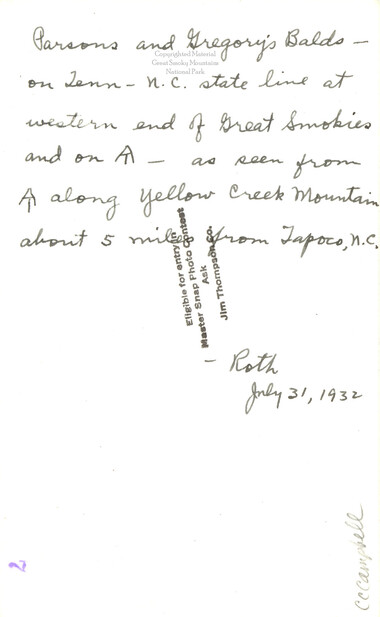 Parsons and Gregory's Balds –
on Tenn – N.C. state line at
western end of Great Smokies
and on AT – as seen from
AT along Yellow Creek Mountain
about 5 miles from Tapoco, N.C.
– Roth
July 31, 1932
Copyrighted Material
Great Smoky Mountains
National Park
Eligible for entry in
Master Snap Photo Contest
Ask
Jim Thompson Co.
2
CCCampbell